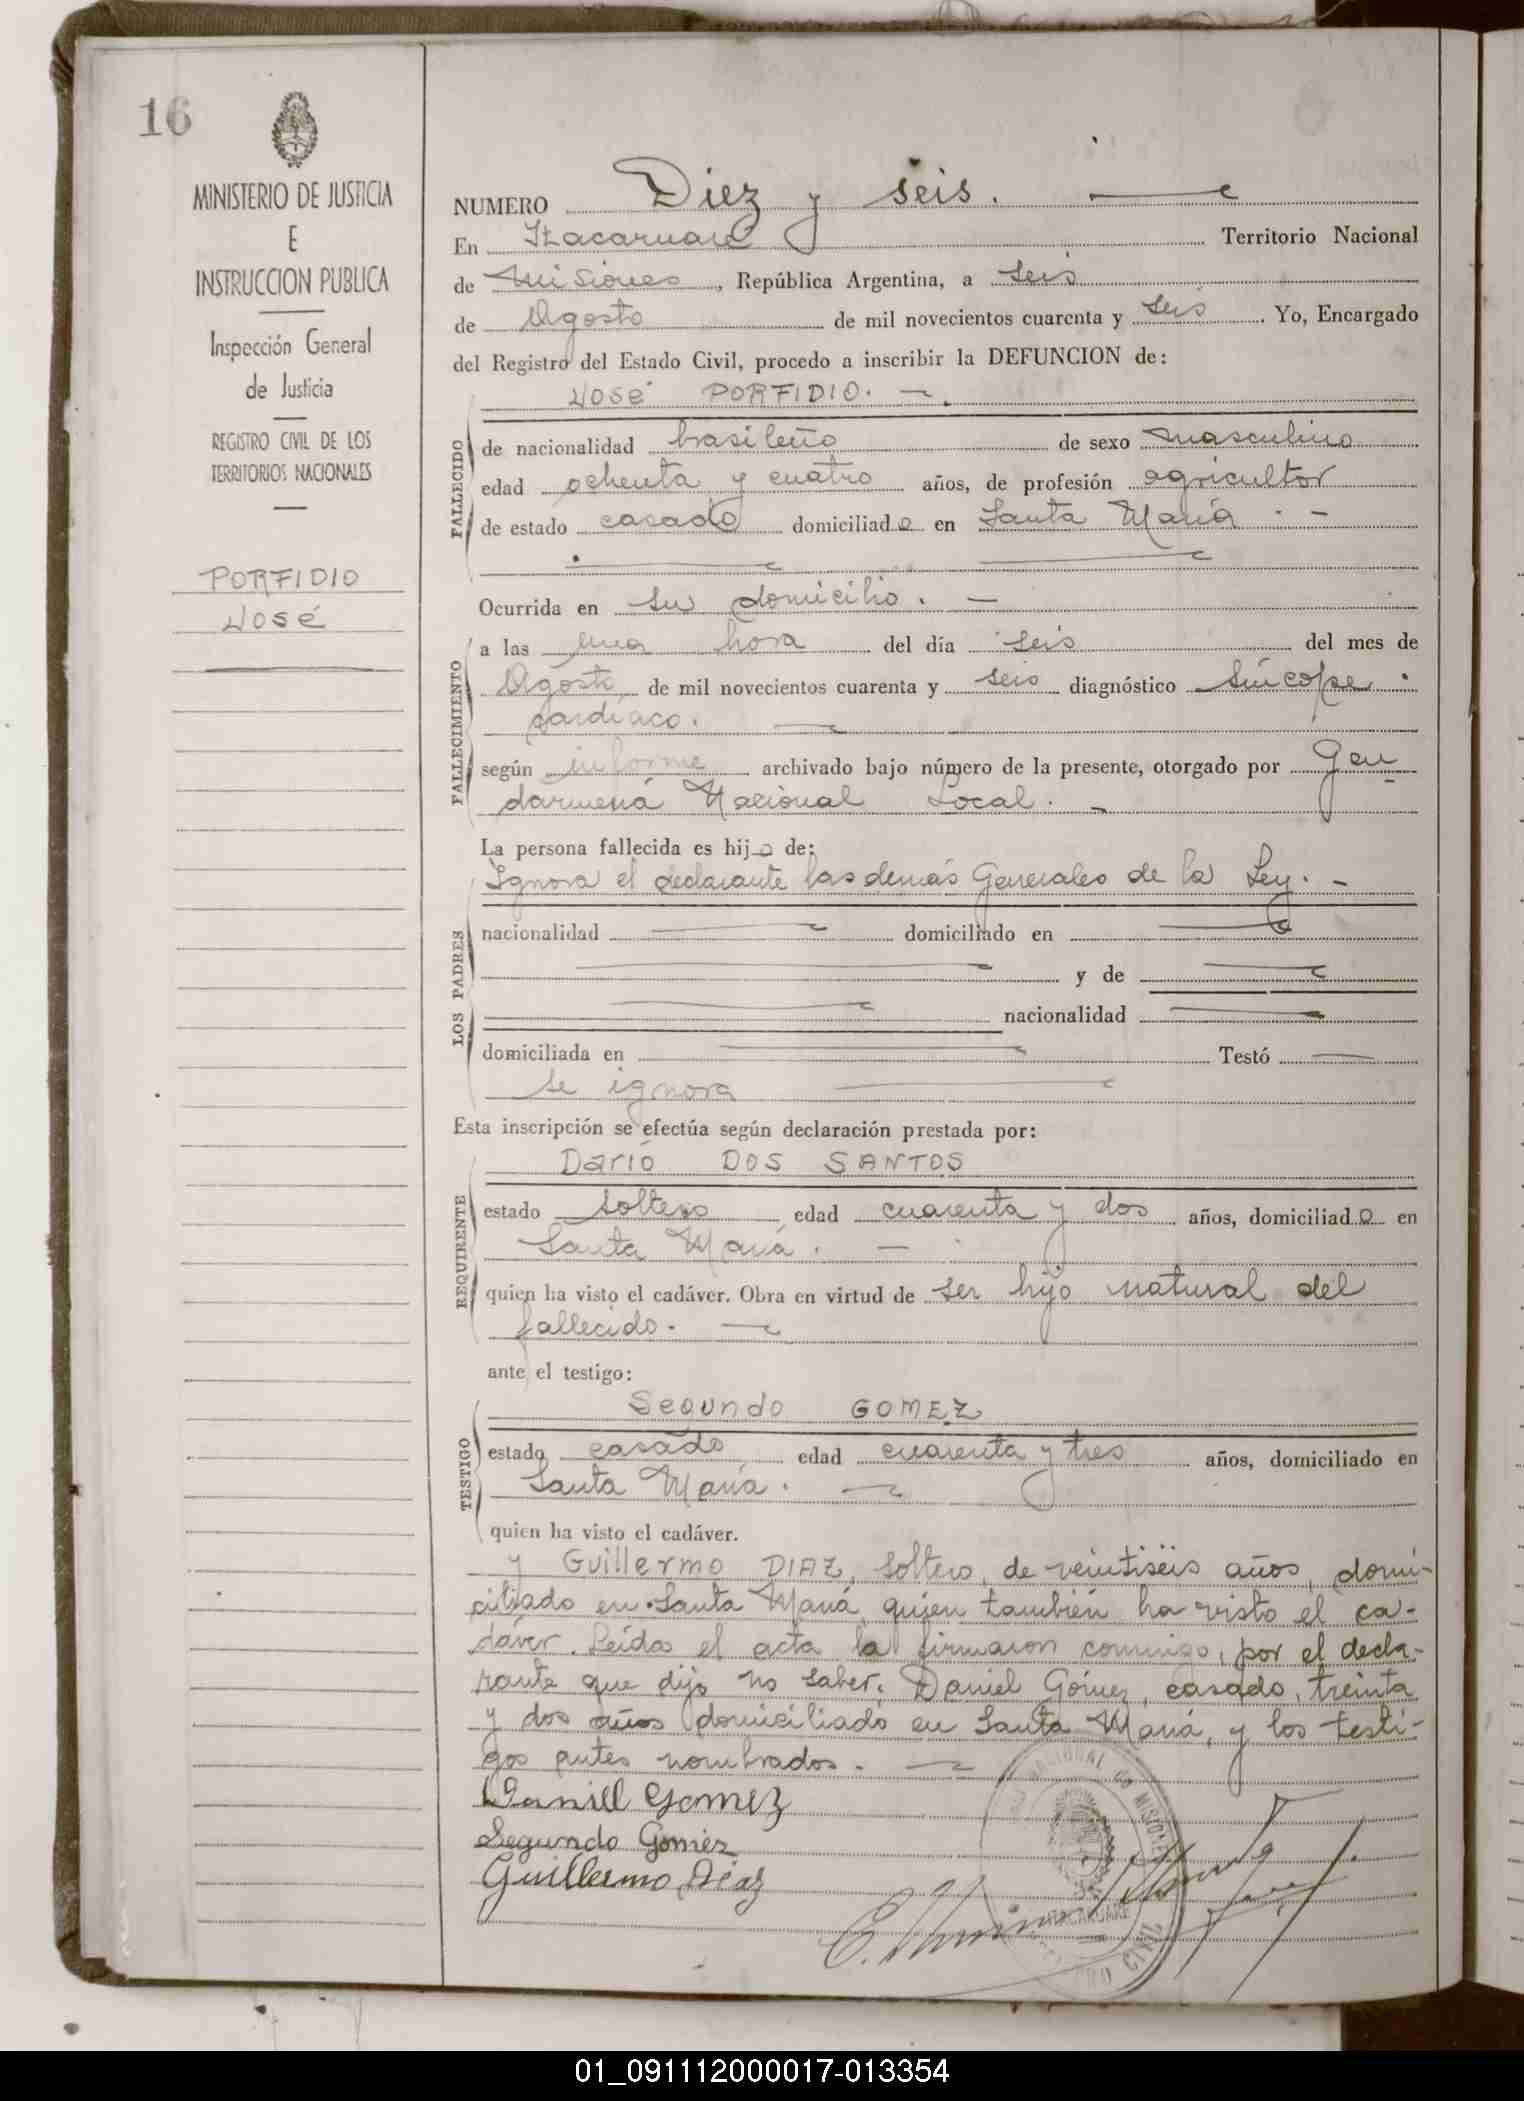 16
MINISTERIO DE JUSTICIA
E
INSTRUCCION PUBLICA
Inspección General
de Justicia
REGISTRO CIVIL DE LOS
TERRITORIOS NACIONALES
PORFIDIO
José
NUMERO Diez y seis.
En Itacaruaré Territorio Nacional
de Misiones, República Argentina, a seis
de Agosto de mil novecientos cuarenta y seis. Yo, Encargado
del Registro del Estado Civil, procedo a inscribir la DEFUNCION de:
José PORFIDIO.
FALLECIDO
de nacionalidad brasileño de sexo masculino
edad ochenta y cuatro años, de profesión agricultor
de estado casado domiciliado en Santa María -
Ocurrida en su domicilio. -
FALLECIMIENTO
a las una hora del día seis del mes de
Agosto de mil novecientos cuarenta y seis diagnóstico Síncope
cardíaco.
según informe archivado bajo número de la presente, otorgado por Gen-
darmería Nacional Local. -
La persona fallecida es hijo de:
Ignora el declarante las demás Generales de la Ley. -
LOS PADRES
nacionalidad domiciliado en
y de
nacionalidad
domiciliada en Testó
se ignora
Esta inscripción se efectúa según declaración prestada por:
Darío DOS SANTOS
REQUIRENTE
estado soltero edad cuarenta y dos años, domiciliado en
Santa María. -
quien ha visto el cadáver. Obra en virtud de ser hijo natural del
fallecido. -
ante el testigo:
Segundo GOMEZ
TESTIGO
estado casado edad cuarenta y tres años, domiciliado en
Santa María.
quien ha visto el cadáver.
y Guillermo DIAZ, soltero, de veintiséis años, domi-
ciliado en Santa María, quien también ha visto el ca-
dáver. Leída el acta la firmaron conmigo, por el decla-
rante que dijo no saber, Daniel Gómez, casado, treinta
y dos años domiciliado en Santa María, y los testi-
gos antes nombrados. -
Daniel Gomez
Segundo Gomez
Guillermo Diaz
NACIONAL DE MISIONES
ITACARUARE
REGISTRO CIVIL
01_091112000017-013354